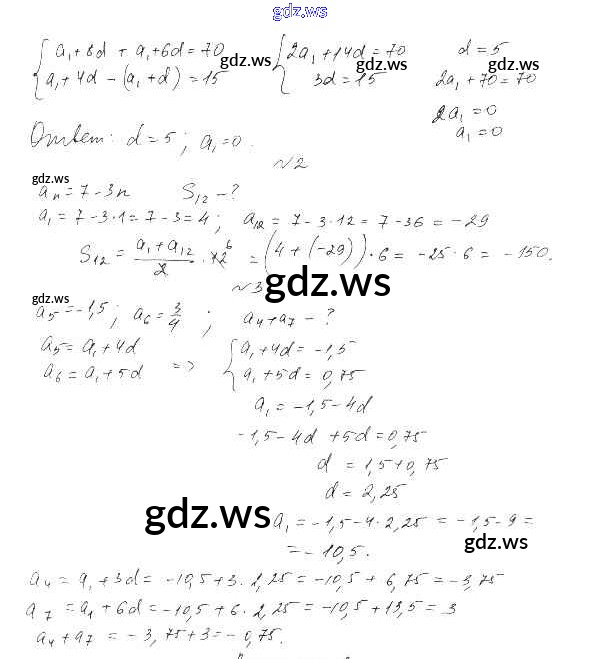 gdz.ws
{ a₁+8d + a₁+6d = 70 { 2a₁+14d = 70 d = 5
{ a₁+4d – (a₁+d) = 15 { 3d = 15 2a₁+70 = 70
gdz.ws gdz.ws gdz.ws
2a₁ = 0
a₁ = 0
Ответ: d = 5; a₁ = 0.
№2
gdz.ws
aₙ = 7 – 3n S₁₂ – ?
a₁ = 7 – 3·1 = 7 – 3 = 4; a₁₂ = 7 – 3·12 = 7 – 36 = –29
S₁₂ = (a₁+a₁₂)/2 · 12 ⁶ = (4 + (–29))·6 = –25·6 = –150.
gdz.ws
№3
gdz.ws
a₅ = –1,5; a₆ = 3/4; a₄+a₇ – ?
a₅ = a₁+4d => { a₁+4d = –1,5
a₆ = a₁+5d { a₁+5d = 0,75
a₁ = –1,5–4d
–1,5–4d +5d = 0,75
d = 1,5+0,75
d = 2,25
gdz.ws
a₁ = –1,5–4·2,25 = –1,5–9 =
gdz.ws
= –10,5.
a₄ = a₁+3d = –10,5+3·2,25 = –10,5+6,75 = –3,75
a₇ = a₁+6d = –10,5+6·2,25 = –10,5+13,5 = 3
a₄+a₇ = –3,75+3 = –0,75.